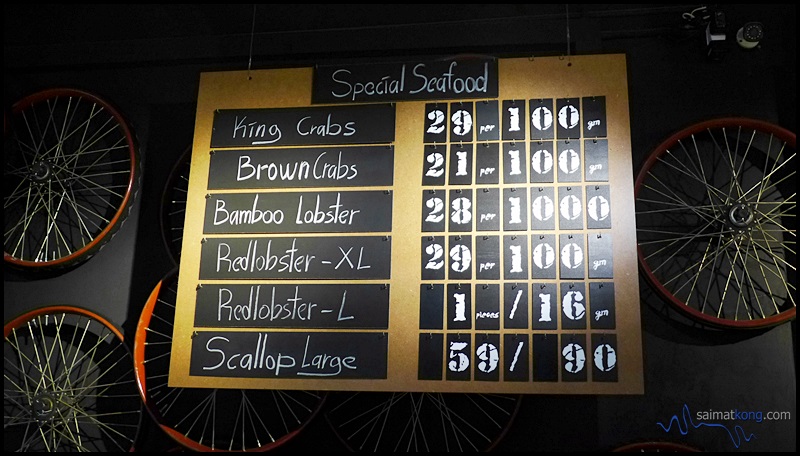 Special Seafood
King Crabs 29 per 100 gm
Brown Crabs 21 per 100 gm
Bamboo Lobster 28 per 1000
Redlobster - XL 29 per 100 gm
Redlobster - L 1 pieces / 16 gm
Scallop Large 59 / 90
saimatkong.com